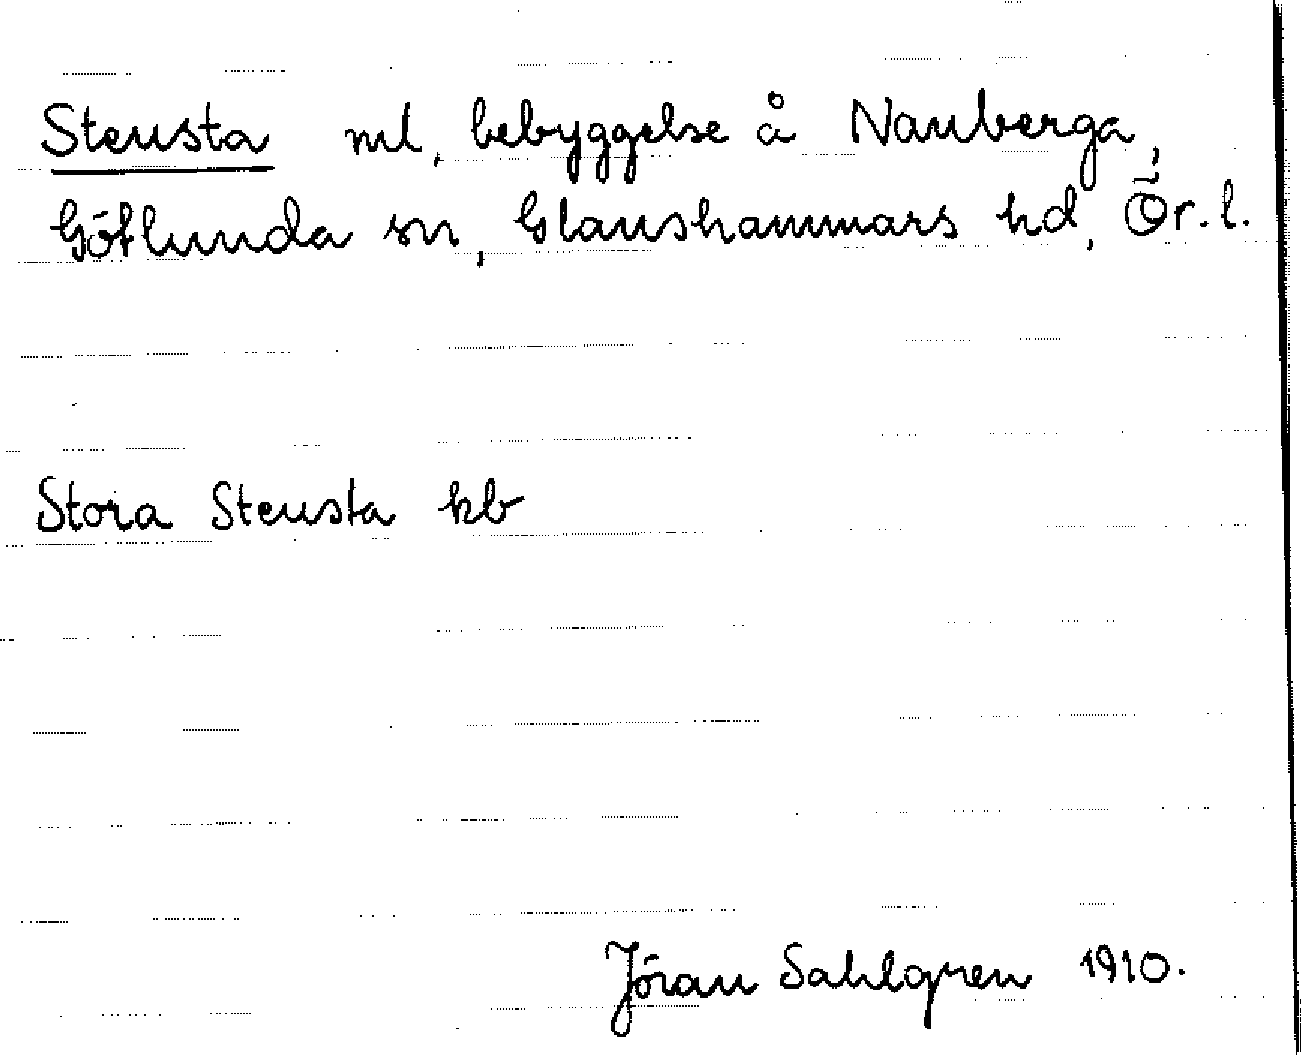 Stensta ml, bebyggelse å Nanberga,
Götlunda sn, Glanshammars hd, Ör. l.
Stora Stensta kb
Jöran Sahlgren 1910.